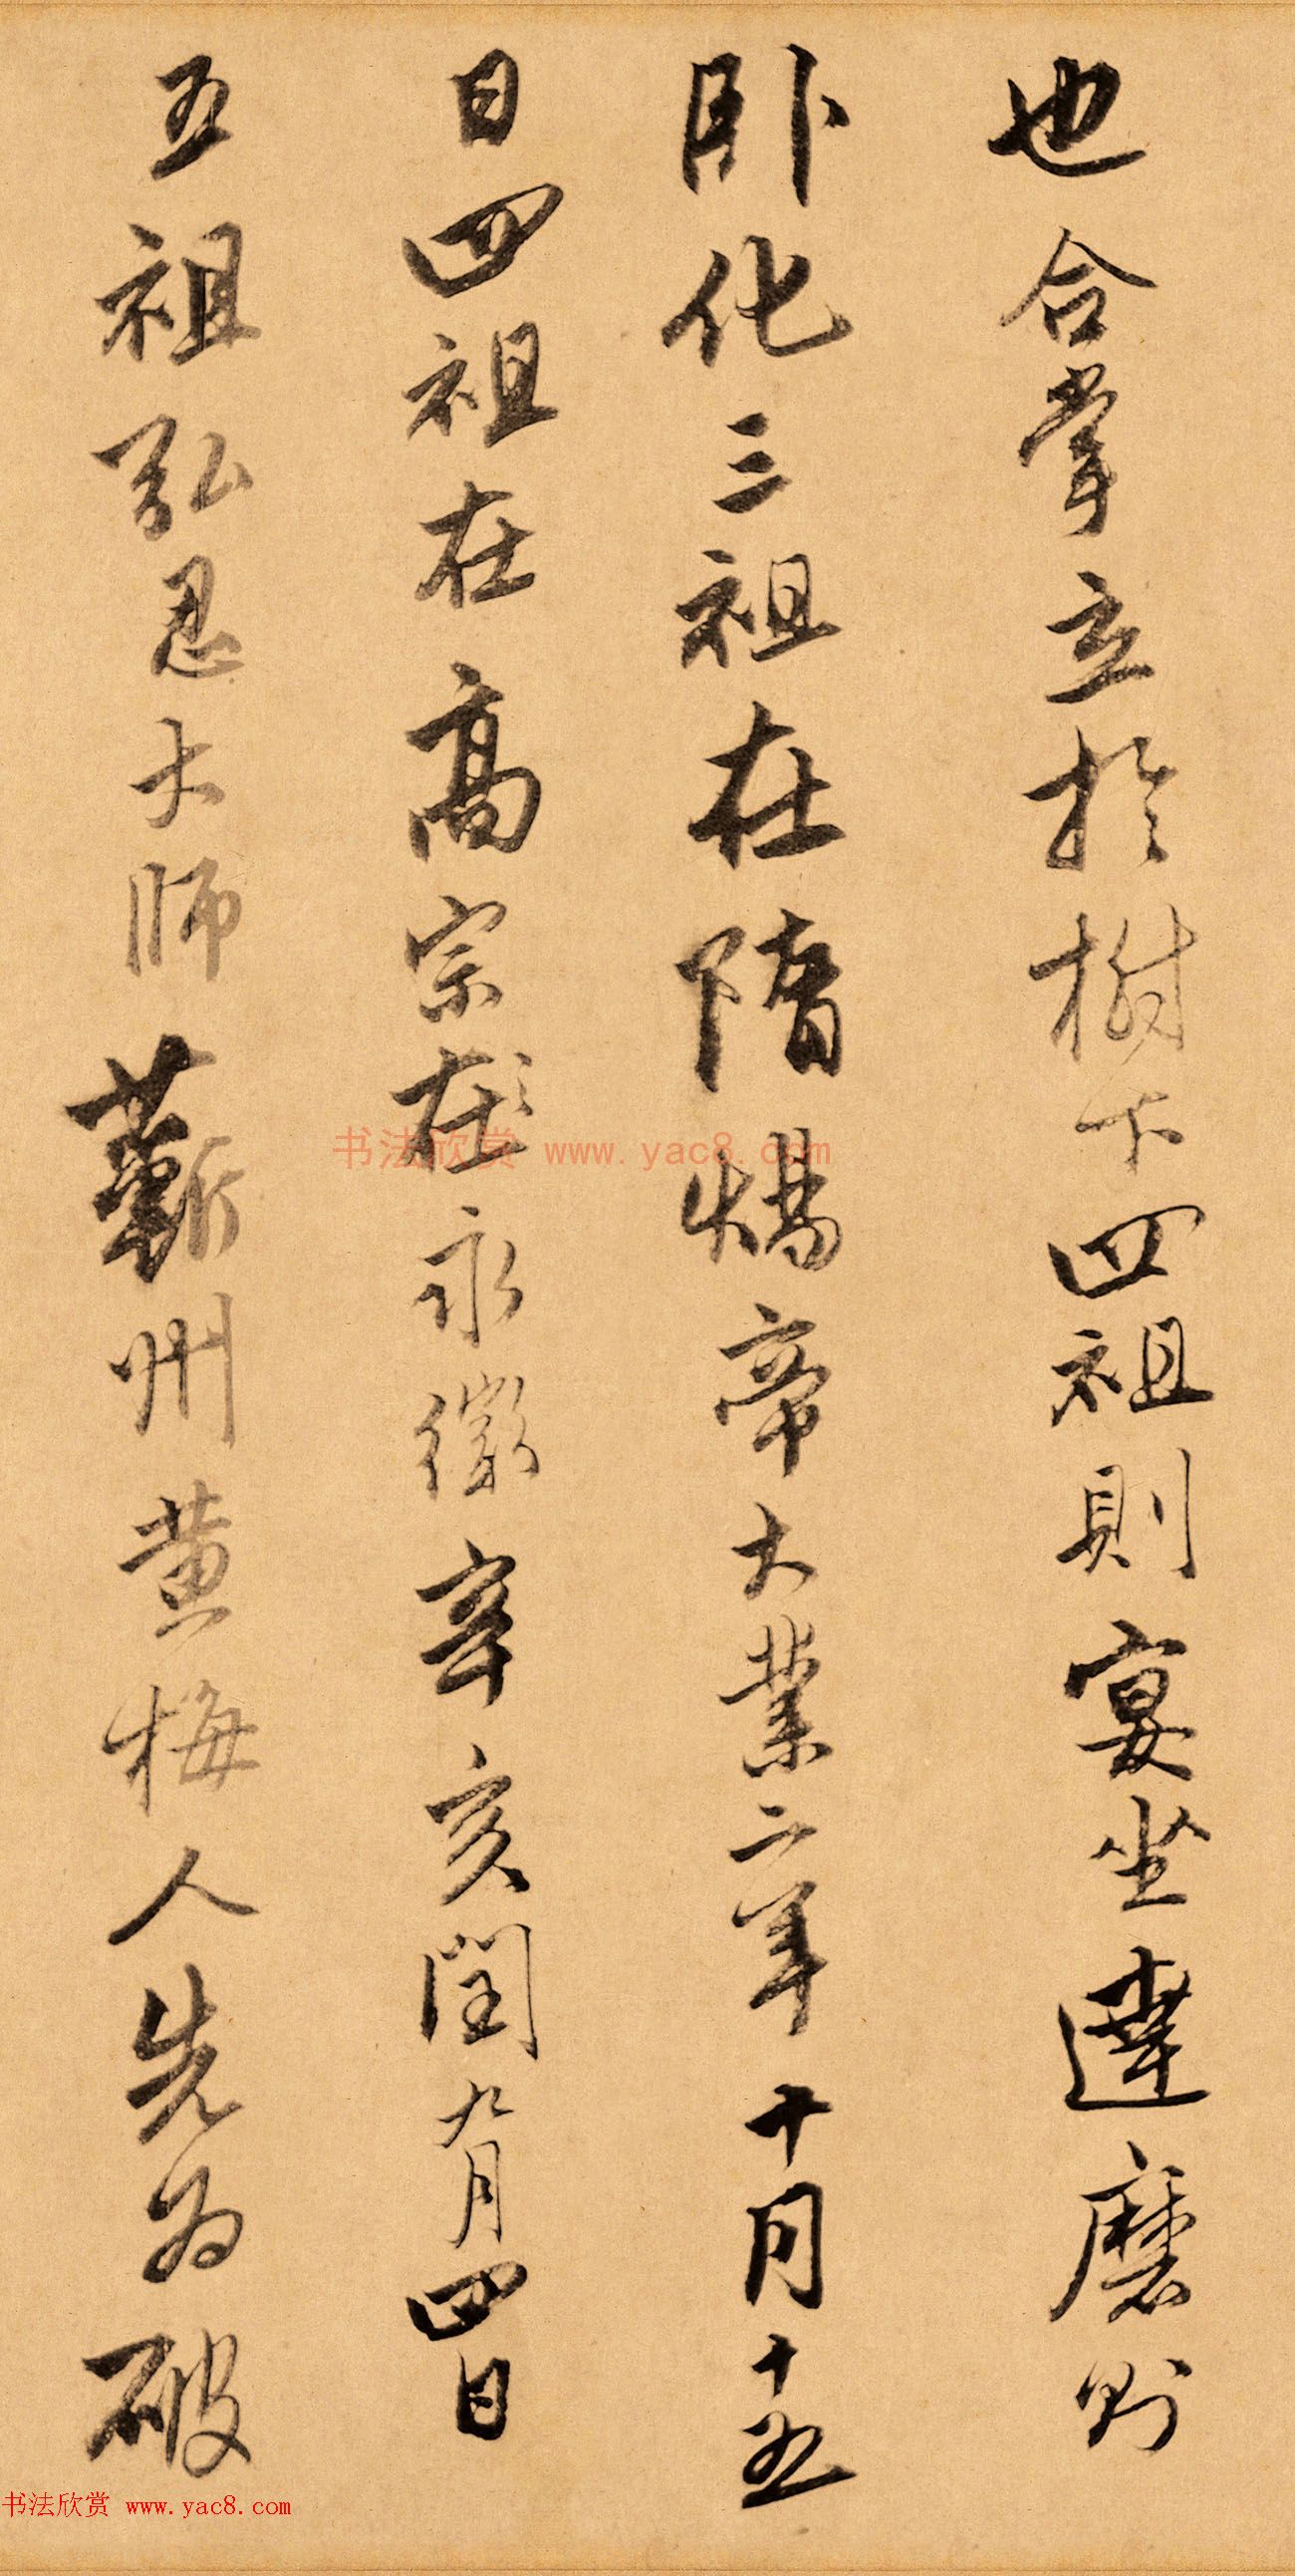 也合掌立於樹下四祖則宴坐達磨則
卧化三祖在隋煬帝大業二年十月十五
日四祖在高宗在永徽辛亥閏九月四日
五祖弘忍大師蘄州黄梅人先为破
书法欣赏 www.yac8.com
书法欣赏 www.yac8.com